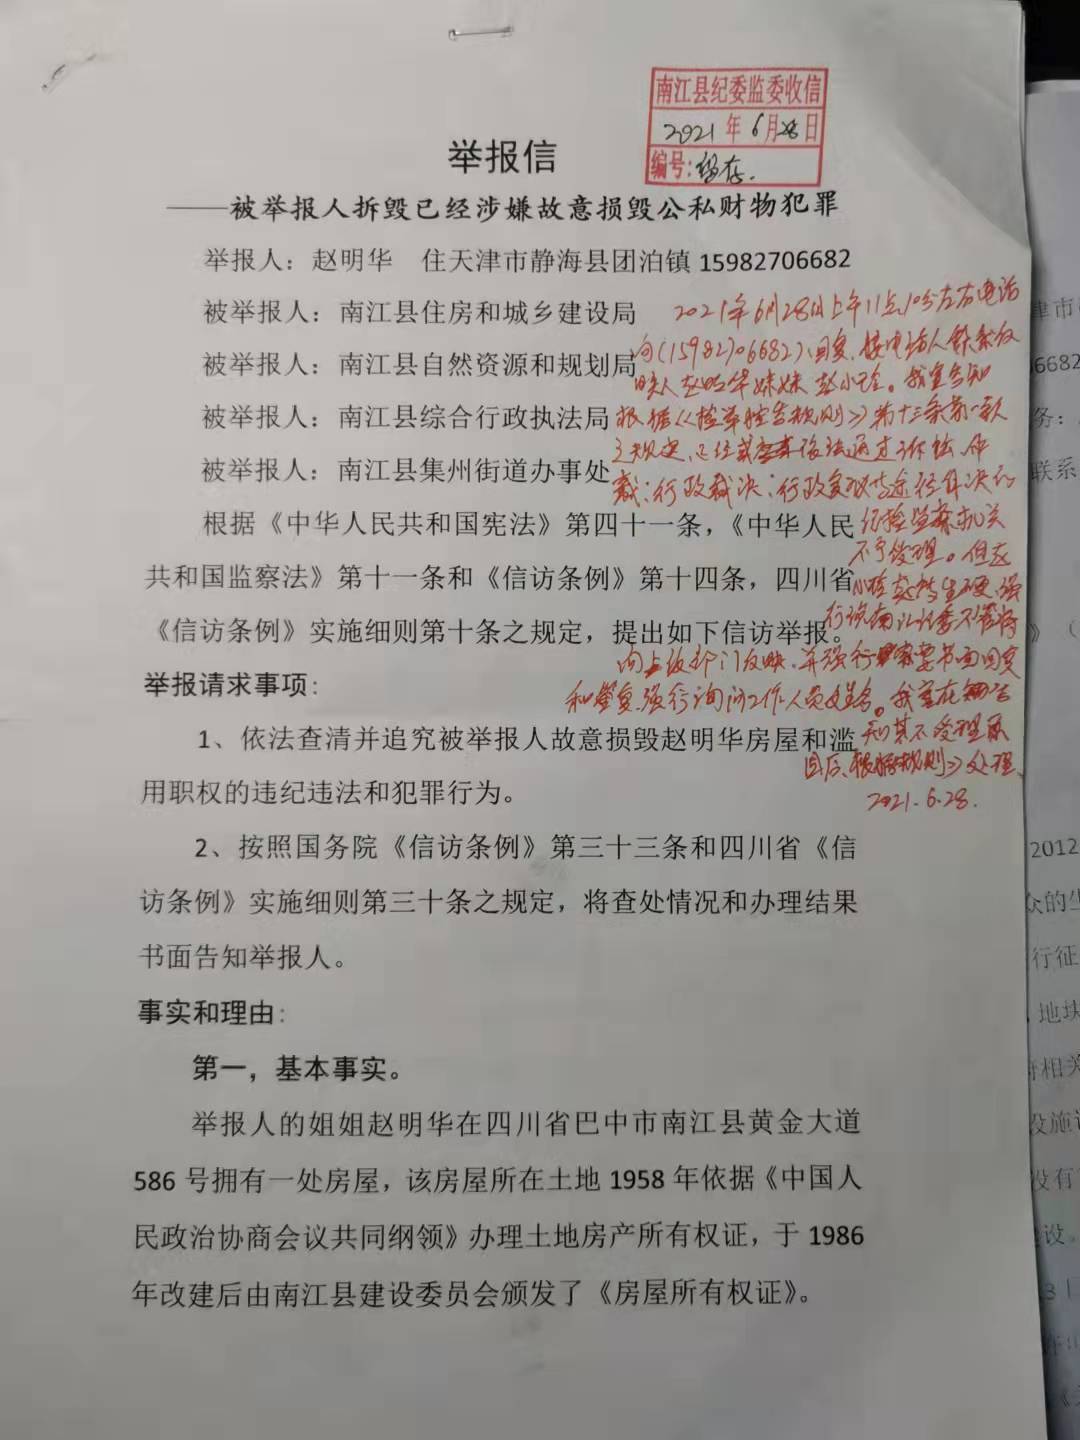 南江县纪委监委收信
2021年6月28日
编号:留存.
举报信
——被举报人拆毁已经涉嫌故意损毁公私财物犯罪
举报人：赵明华 住天津市静海县团泊镇 15982706682
被举报人：南江县住房和城乡建设局
被举报人：南江县自然资源和规划局
被举报人：南江县综合行政执法局
被举报人：南江县集州街道办事处
根据《中华人民共和国宪法》第四十一条，《中华人民
共和国监察法》第十一条和《信访条例》第十四条，四川省
《信访条例》实施细则第十条之规定，提出如下信访举报。
举报请求事项:
1、依法查清并追究被举报人故意损毁赵明华房屋和滥
用职权的违纪违法和犯罪行为。
2、按照国务院《信访条例》第三十三条和四川省《信
访条例》实施细则第三十条之规定，将查处情况和办理结果
书面告知举报人。
事实和理由:
第一，基本事实。
举报人的姐姐赵明华在四川省巴中市南江县黄金大道
586 号拥有一处房屋，该房屋所在土地 1958 年依据《中国人
民政治协商会议共同纲领》办理土地房产所有权证，于 1986
年改建后由南江县建设委员会颁发了《房屋所有权证》。
2021年6月28日上午11点10分左右电话
向(15982706682)回复,接电话人系反
映人赵明华妹妹赵小 。我室告知
根据《检举控告规则》第十三条第一款
之规定,已经或 依法通过诉讼、仲
裁、行政裁决、行政复议等途径解决的
纪检监察机关
不予受理。但赵
小 态度生硬,强
行说南江纪委不管将
向上级部门反映,并强行 要书面回复
和 复,强行询问工作人员姓名。我室在 告
知其不受理原
因后,根据规则》处理.
2021.6.28.
津市
6682
务：
联系
》（
2012
众的生
行征
，地块
相关
设施
没有
设。